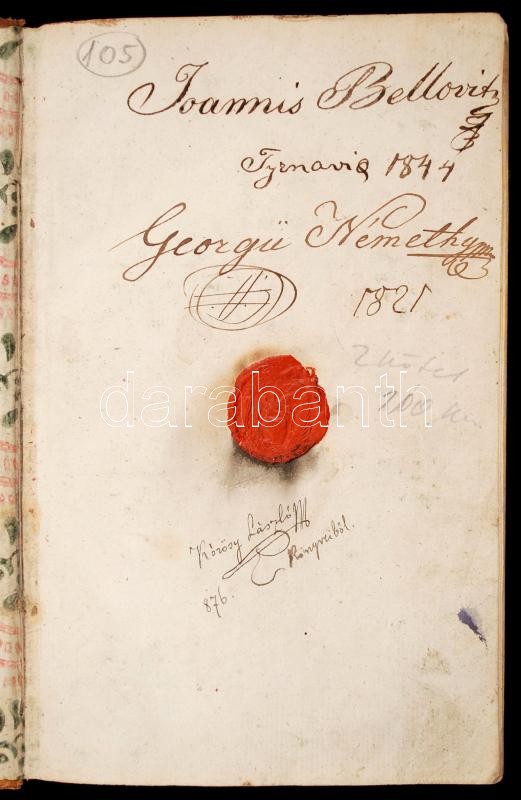 105
Joannis Bellovitz
Tyrnaviae 1844
Georgii Némethy
1821
2 kötet
200
darabanth
Kőrösy László
Könyveiből.
876.